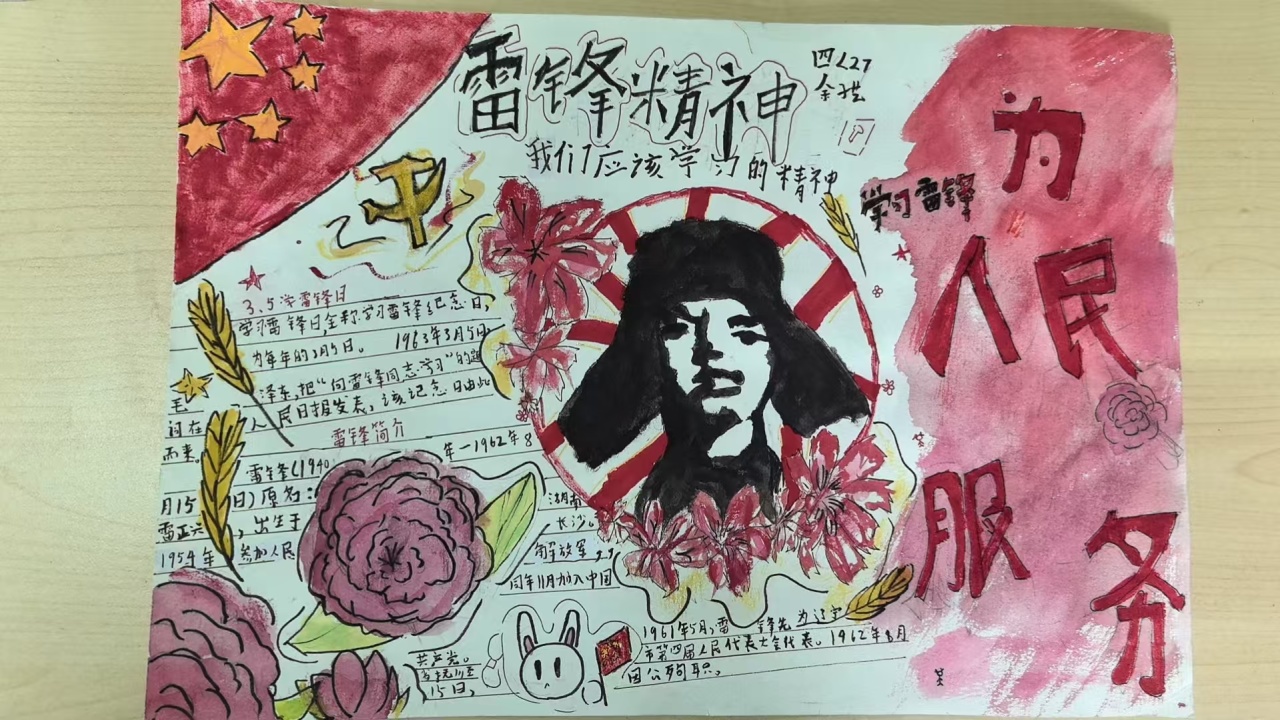 雷锋精神
我们应该学习的精神
四(27
学习雷锋
为
人民
服
务
3.5学雷锋日
学习雷锋日全称学习雷锋纪念日,
为每年的3月5日。 1963年3月5日
毛泽东把“向雷锋同志学习”的题
词在人民日报发表,该纪念日由此
而来。
雷锋简介
雷锋(1940年—1962年8
月15日)原名:
雷正兴,出生于湖南
长沙。
1954年参加人民解放军,
同年11月加入中国
共产党。
15日,
1961年5月,雷锋先为辽宁
市第四届人民代表大会代表。1962年8月
因公殉职。